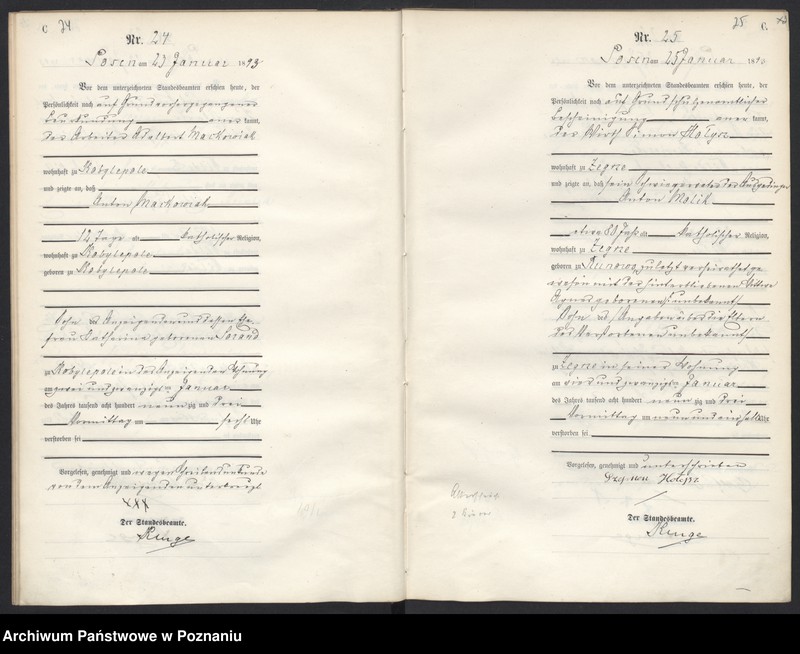 C 24
Nr. 24
Posen am 23 Januar 1893
Vor dem unterzeichneten Standesbeamten erschien heute, der
Persönlichkeit nach auf Grund vorhergegangener
Beurkundung anerkannt,
der Arbeiter Adalbert Maćkowiak
wohnhaft zu Kobylepole
und zeigte an, daß
Anton Maćkowiak
12 Tage alt katholischer Religion,
wohnhaft zu Kobylepole
geboren zu Kobylepole
Sohn des Anzeigenden und dessen Ehe-
frau Katharina geborenen
zu Kobylepole in des Anzeigenden Wohnung
am zwei und zwanzigsten Januar
des Jahres tausend acht hundert neunzig und drei
Vormittag um sechs Uhr
verstorben sei
Vorgelesen, genehmigt und wegen Schreibensunkunde
von dem Anzeigenden unterkreuzt
XXX
Der Standesbeamte.
25 C.
Nr. 25
Posen am 25 Januar 1893
Vor dem unterzeichneten Standesbeamten erschien heute, der
Persönlichkeit nach auf Grund schulzenamtlicher
Bescheinigung anerkannt,
der Wirth Simon
wohnhaft zu Zegrze
und zeigte an, daß sein Schwiegervater der Ausgedinger
Anton Malik
etwa 88 Jahr alt katholischer Religion,
wohnhaft zu Zegrze
geboren zu zuletzt verheirathet ge-
wesen mit der hinterbliebenen
geborene unbekannt
Sohn der Angabe über die Eltern
des Verstorbenen unbekannt
zu Zegrze in seiner Wohnung
am vier und zwanzigsten Januar
des Jahres tausend acht hundert neunzig und drei
Vormittag um neun und einhalb Uhr
verstorben sei
Vorgelesen, genehmigt und unterschrieben
Der Standesbeamte.
Archiwum Państwowe w Poznaniu